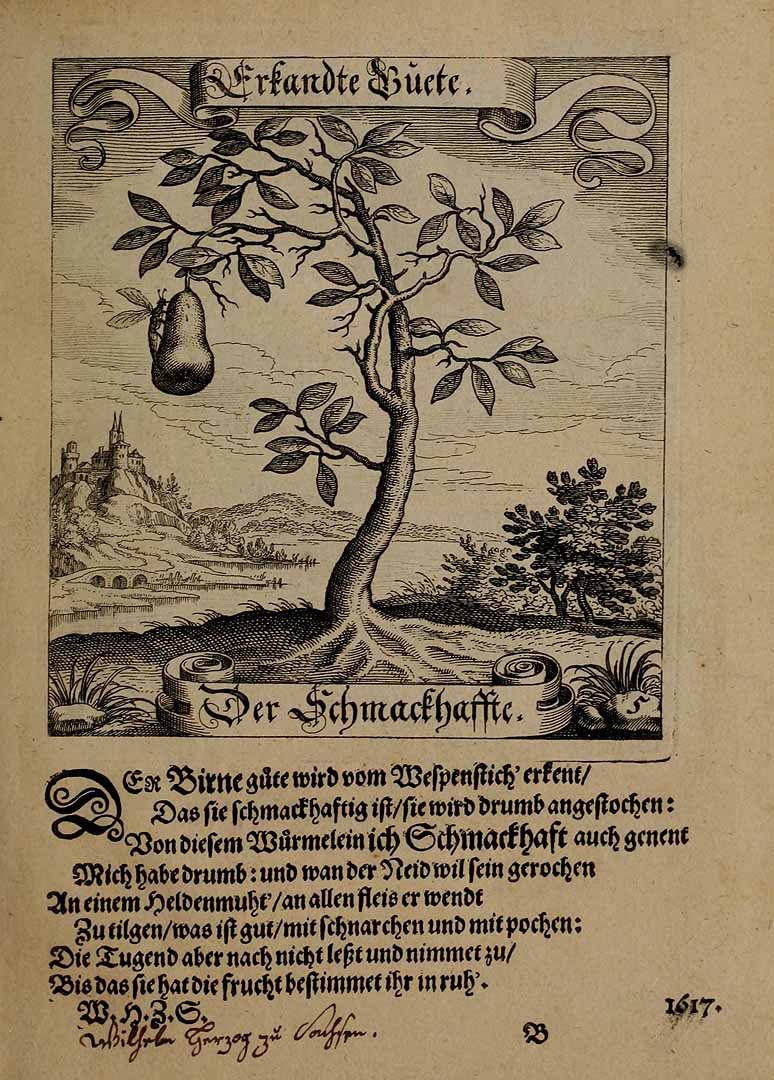 Erkandte Guete.
5
Der Schmackhaffte.
DER Birne gůte wird vom Wespenstich' erkent/
Das sie schmackhaftig ist/sie wird drumb angestochen:
Von diesem Wůrmelein ich Schmackhaft auch genent
Mich habe drumb: und wan der Neid wil sein gerochen
An einem Heldenmuht'/an allen fleis er wendt
Zu tilgen/was ist gut/mit schnarchen und mit pochen:
Die Tugend aber nach nicht leßt und nimmet zu/
Bis das sie hat die frucht bestimmet ihr in ruh'.
W. H. Z. S.
1617.
Wilhelm Herzog zu Sachsen.
B